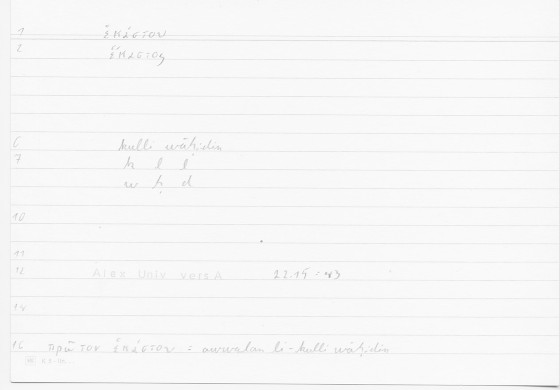 1 ἕκαστον
2 ἕκαστος
6 kulli wāḥidin
7 k l l
w ḥ d
10
11
12 Alex Univ vers A 22.19 =
14
16 πρῶτον ἕκαστον = awwalan li-kulli wāḥidin